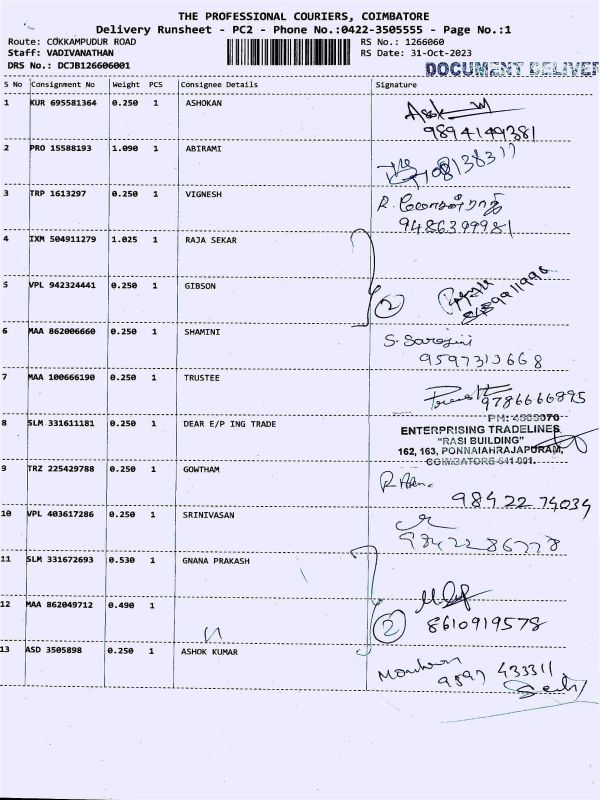 THE PROFESSIONAL COURIERS, COIMBATORE
Delivery Runsheet - PC2 - Phone No.:0422-3505555 - Page No.:1
Route: COKKAMPUDUR ROAD RS No.: 1266060
Staff: VADIVANATHAN RS Date: 31-Oct-2023
DRS No.: DCJB126606001 DOCUMENT DELIVER
S No Consignment No Weight PCS Consignee Details Signature
1 KUR 695581364 0.250 1 ASHOKAN
9894149381
2 PRO 15588193 1.090 1 ABIRAMI
3 TRP 1613297 0.250 1 VIGNESH R.
9486399981
4 IXM 504911279 1.025 1 RAJA SEKAR
5 VPL 942324441 0.250 1 GIBSON 2
6 MAA 862006660 0.250 1 SHAMINI S. Sarojini
9597313668
7 MAA 100666190 0.250 1 TRUSTEE
9786666895
PH: 4505070
8 SLM 331611181 0.250 1 DEAR E/P ING TRADE ENTERPRISING TRADELINES
"RASI BUILDING"
162, 163, PONNAIAHRAJAPURAM,
COIMBATORE-641 001.
9 TRZ 225429788 0.250 1 GOWTHAM
98422 74034
10 VPL 403617286 0.250 1 SRINIVASAN
9842286778
11 SLM 331672693 0.530 1 GNANA PRAKASH
12 MAA 862049712 0.490 1 2
8610919578
13 ASD 3505898 0.250 1 ASHOK KUMAR
9597 433311